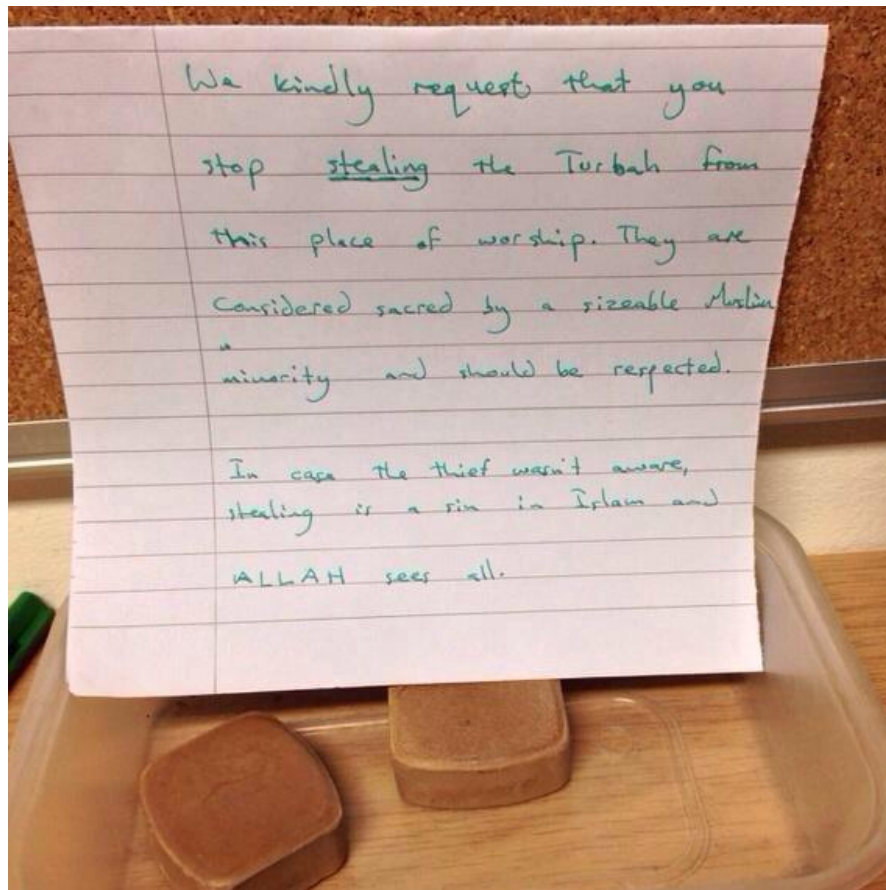 We kindly request that you
stop stealing the Turbah from
this place of worship. They are
considered sacred by a sizeable Muslim
minority and should be respected.
In case the thief wasn't aware,
stealing is a sin in Islam and
ALLAH sees all.